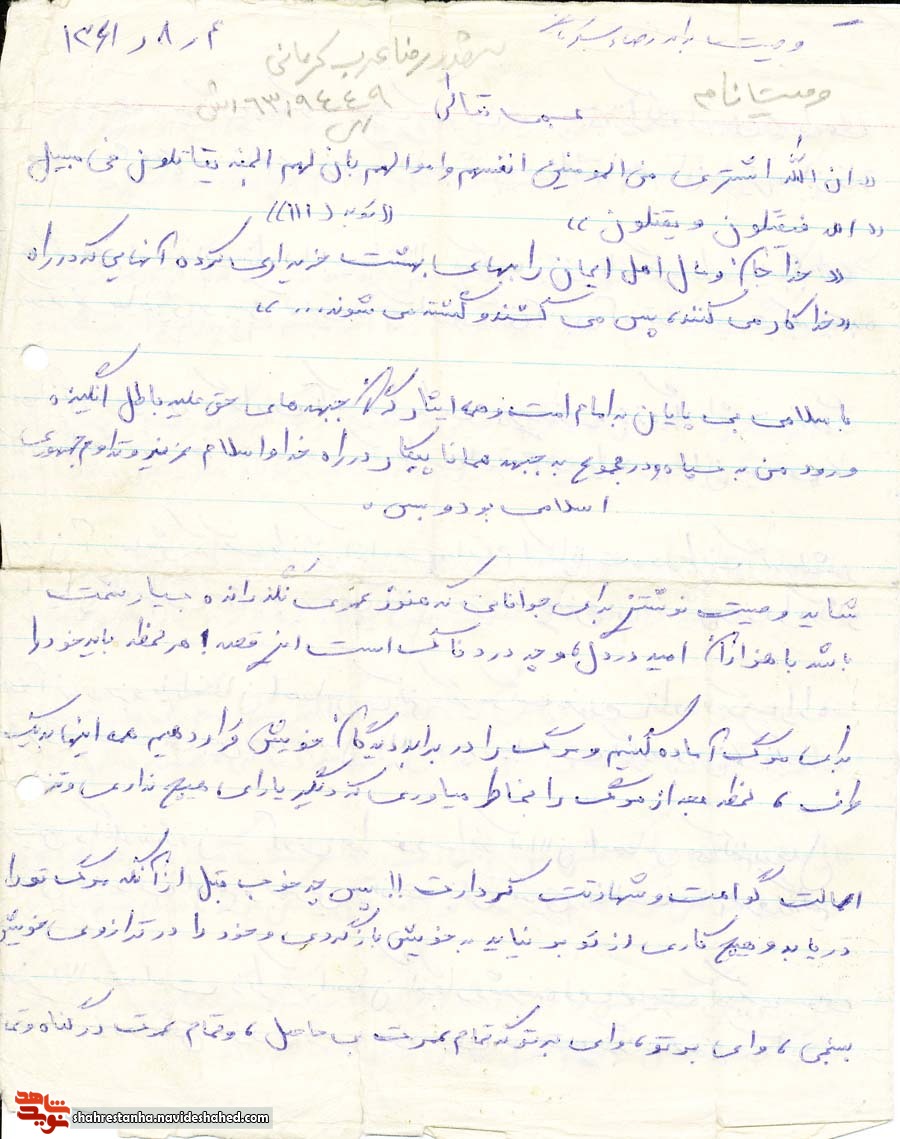 ۱۳۶۱ ر ۸ ر ۴
وصیت برادر رضا
شهید رضا عرب کرمانی
وصیتنامه
بسمه تعالی
«ان الله اشتری من المومنین انفسهم و اموالهم بان لهم الجنه یقاتلون فی سبیل
«الله فیقتلون و یقتلون» «توبه (۱۱۱)»
«خدا جان و مال اهل ایمان را ببهای بهشت خریداری کرده آنهایی که در راه
«خدا کار می کنند، پس می کشند و کشته می شوند...»
با سلامی بی پایان به امام امت و همه ایثارگران جبهه های حق علیه باطل انگیزه
ورود من به سپاه و در مجموع به جبهه همانا پیکار در راه خدا و اسلام عزیز و تداوم جمهوری
اسلامی بود و بس.
شاید وصیت نوشتن برای جوانانی که هنوز عمری نگذرانده بسیار سخت
باشد با هزاران امید در دل، و چه دردناک است این قصه! هر لحظه باید خود را
برای مرگ آماده کنیم و مرگ را در برابر دیدگان خویش قرار دهیم همه اینها به یک
طرف، لحظه بعد از مرگ را بخاطر میاوری که دیگر یارای هیچ نداری و تنها
اعمالت گواهت و شهادتت کردارت!! پس چه خوب قبل از آنکه مرگ تو را
دریابد و هیچ کاری از تو بر نیاید به خویش بازگردی و خود را در ترازوی خویش
بسنجی، وای بر تو، وای بر تو که تمام عمرت بی حاصل، و تمام عمرت در گناه و
نوید شاهد
shahrestanha.navideshahed.com